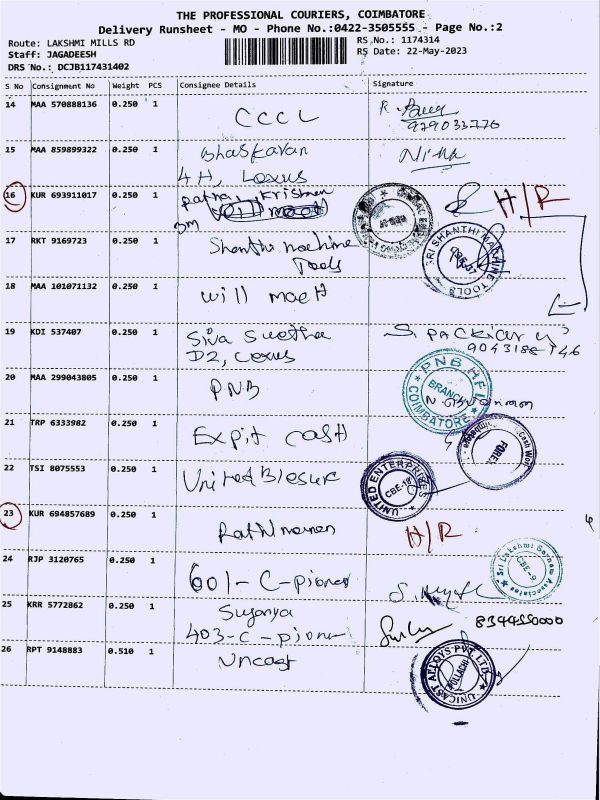 THE PROFESSIONAL COURIERS, COIMBATORE
Delivery Runsheet - MO - Phone No.:0422-3505555 - Page No.:2
Route: LAKSHMI MILLS RD
RS No.: 1174314
Staff: JAGADEESH
RS Date: 22-May-2023
DRS No.: DCJB117431402
S No Consignment No Weight PCS Consignee Details Signature
14 MAA 570888136 0.250 1 CCCL R
979033776
15 MAA 859899322 0.250 1 Bhaskaran
4 H, Loxus
16 KUR 693911017 0.250 1 Krishnan H/R
17 RKT 9169723 0.250 1 Shanthi machine
Tools
SRI SHANTHI MACHINE TOOLS
18 MAA 101071132 0.250 1 will
19 KDI 537407 0.250 1 Siva
D2, Loxus
S. Packiar
20 MAA 299043805 0.250 1 PNB
PNB HFL
BRANCH
COIMBATORE
21 TRP 6333982 0.250 1 cash
FOREX
22 TSI 8075553 0.250 1 United
UNITED ENTERPRISES
CBE-18
23 KUR 694857689 0.250 1 H/R
24 RJP 3120765 0.250 1 601-C-pioner
Sri Lakshmi Associates
CBE-9
25 KRR 5772862 0.250 1 Suganya
403-C-pioner
8344550000
26 RPT 9148883 0.510 1 Unicast
UNICAST ALLOYS PVT LTD
POLLACHI